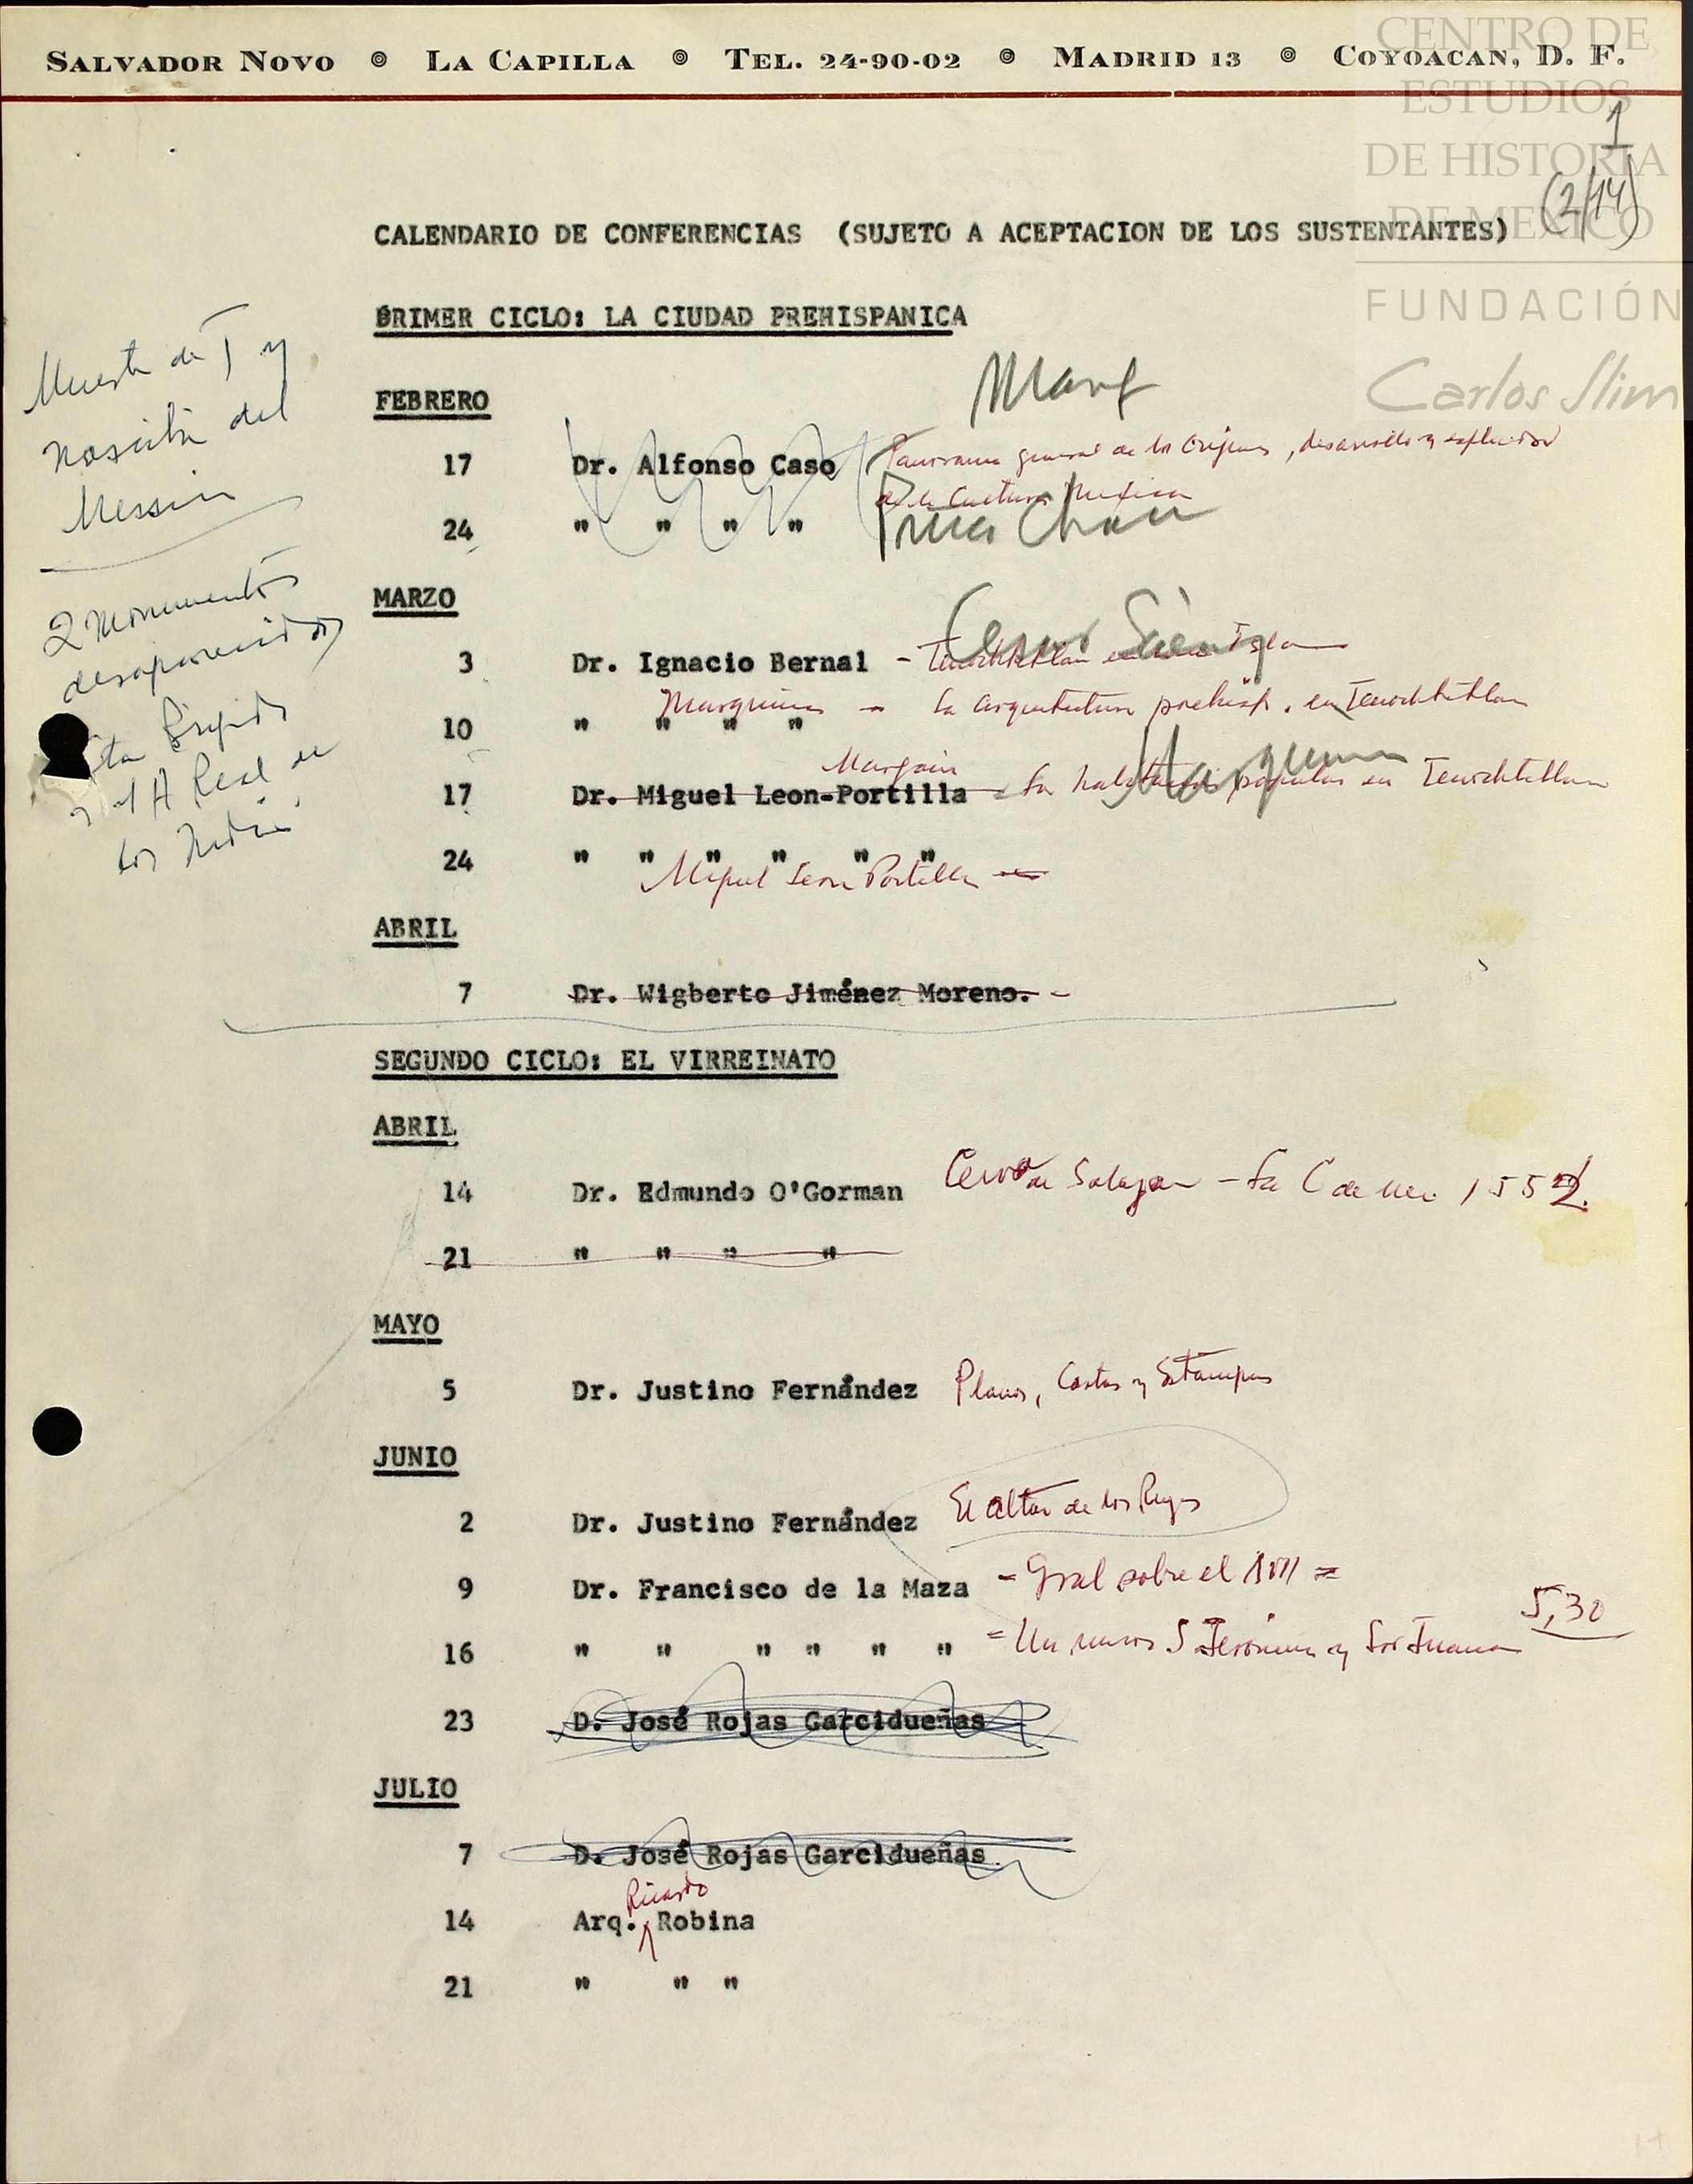 SALVADOR NOVO ◎ LA CAPILLA ◎ TEL. 24-90-02 ◎ MADRID 13 ◎ COYOACAN, D. F.
CENTRO DE
ESTUDIOS
DE HISTORIA
DE MEXICO
FUNDACIÓN
Carlos Slim
1
(2/14)
CALENDARIO DE CONFERENCIAS (SUJETO A ACEPTACION DE LOS SUSTENTANTES)
PRIMER CICLO: LA CIUDAD PREHISPANICA
Muerte de T y
del
FEBRERO
17 Dr. Alfonso Caso Panorama general de los Orígenes, desarrollo y esplendor
de la Cultura Mexica
24 " " " " Piña Chan
2 Monumentos
desaparecidos
MARZO
Cesar Sáenz
3 Dr. Ignacio Bernal - Tenochtitlan en una Isla
Marquina - La arquitectura prehisp. en Tenochtitlan
10 " " " "
Margain Marquina
17 Dr. Miguel Leon-Portilla - La habitación popular en Tenochtitlan
y el H Real de
los Indios
24 " " " " " "
Miguel Leon Portilla
ABRIL
7 Dr. Wigberto Jiménez Moreno. -
SEGUNDO CICLO: EL VIRREINATO
ABRIL
14 Dr. Edmundo O'Gorman Cerv de Salazar - La C de Mex. 1552.
21 " " " "
MAYO
5 Dr. Justino Fernández Planos, Cartas y Estampas
JUNIO
2 Dr. Justino Fernández El altar de los Reyes
9 Dr. Francisco de la Maza - Gral sobre el XVII =
5,30
16 " " " " " " = Un museo S Jerónimo y Sor Juana
23 D. José Rojas Garcidueñas
JULIO
7 D. José Rojas Garcidueñas.
Ricardo
14 Arq. Robina
21 " " "